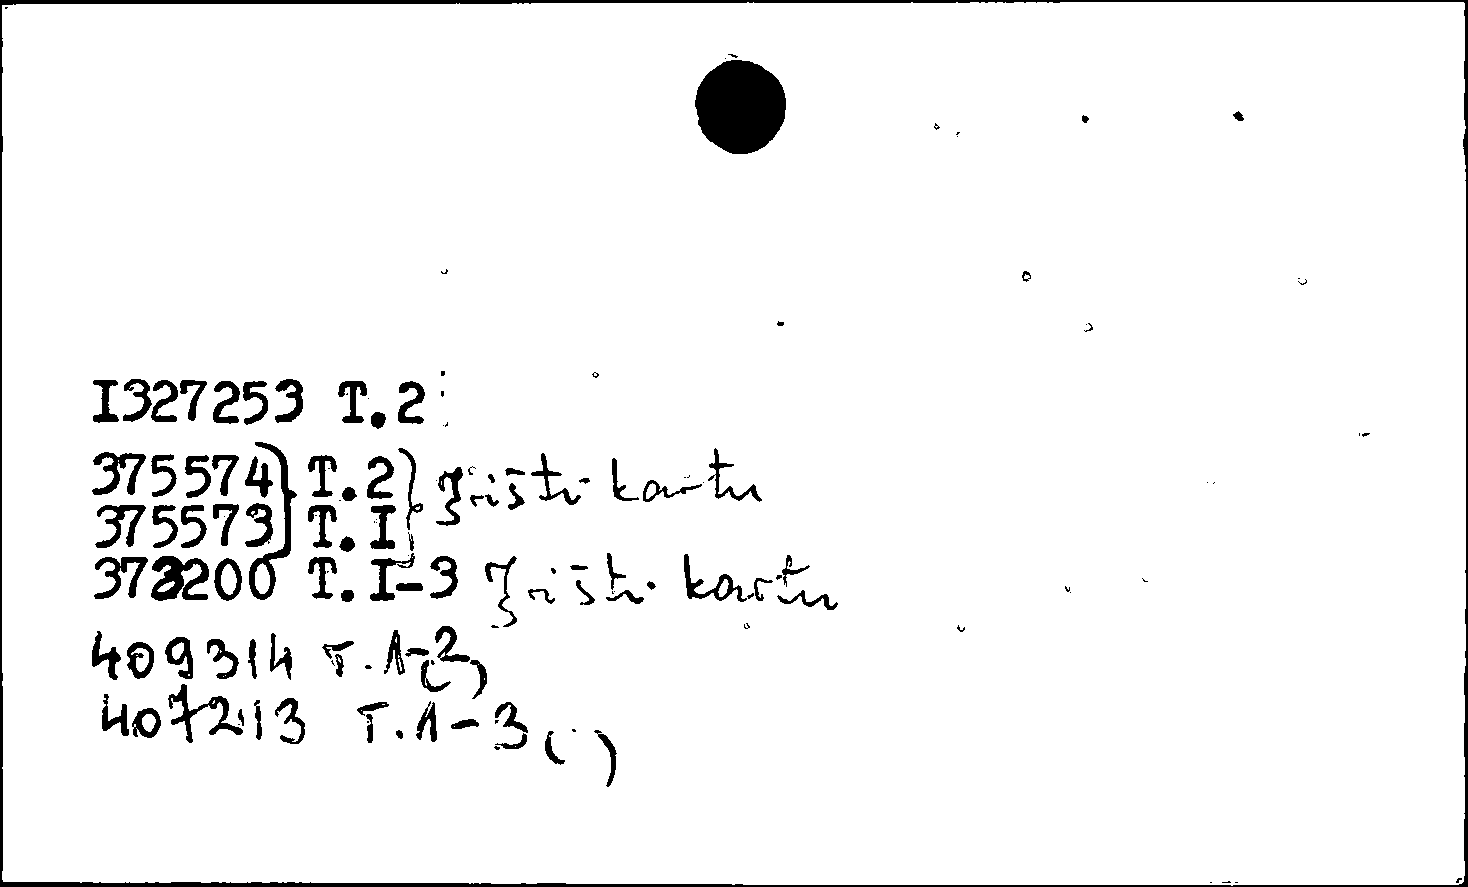 I327253 T.2
375574} T.2} Įrišti kartu
375573} T.I}
373200 T.I-3 Įrišti kartu
409314 T.1-2 ( )
407213 T.1-3 ( )